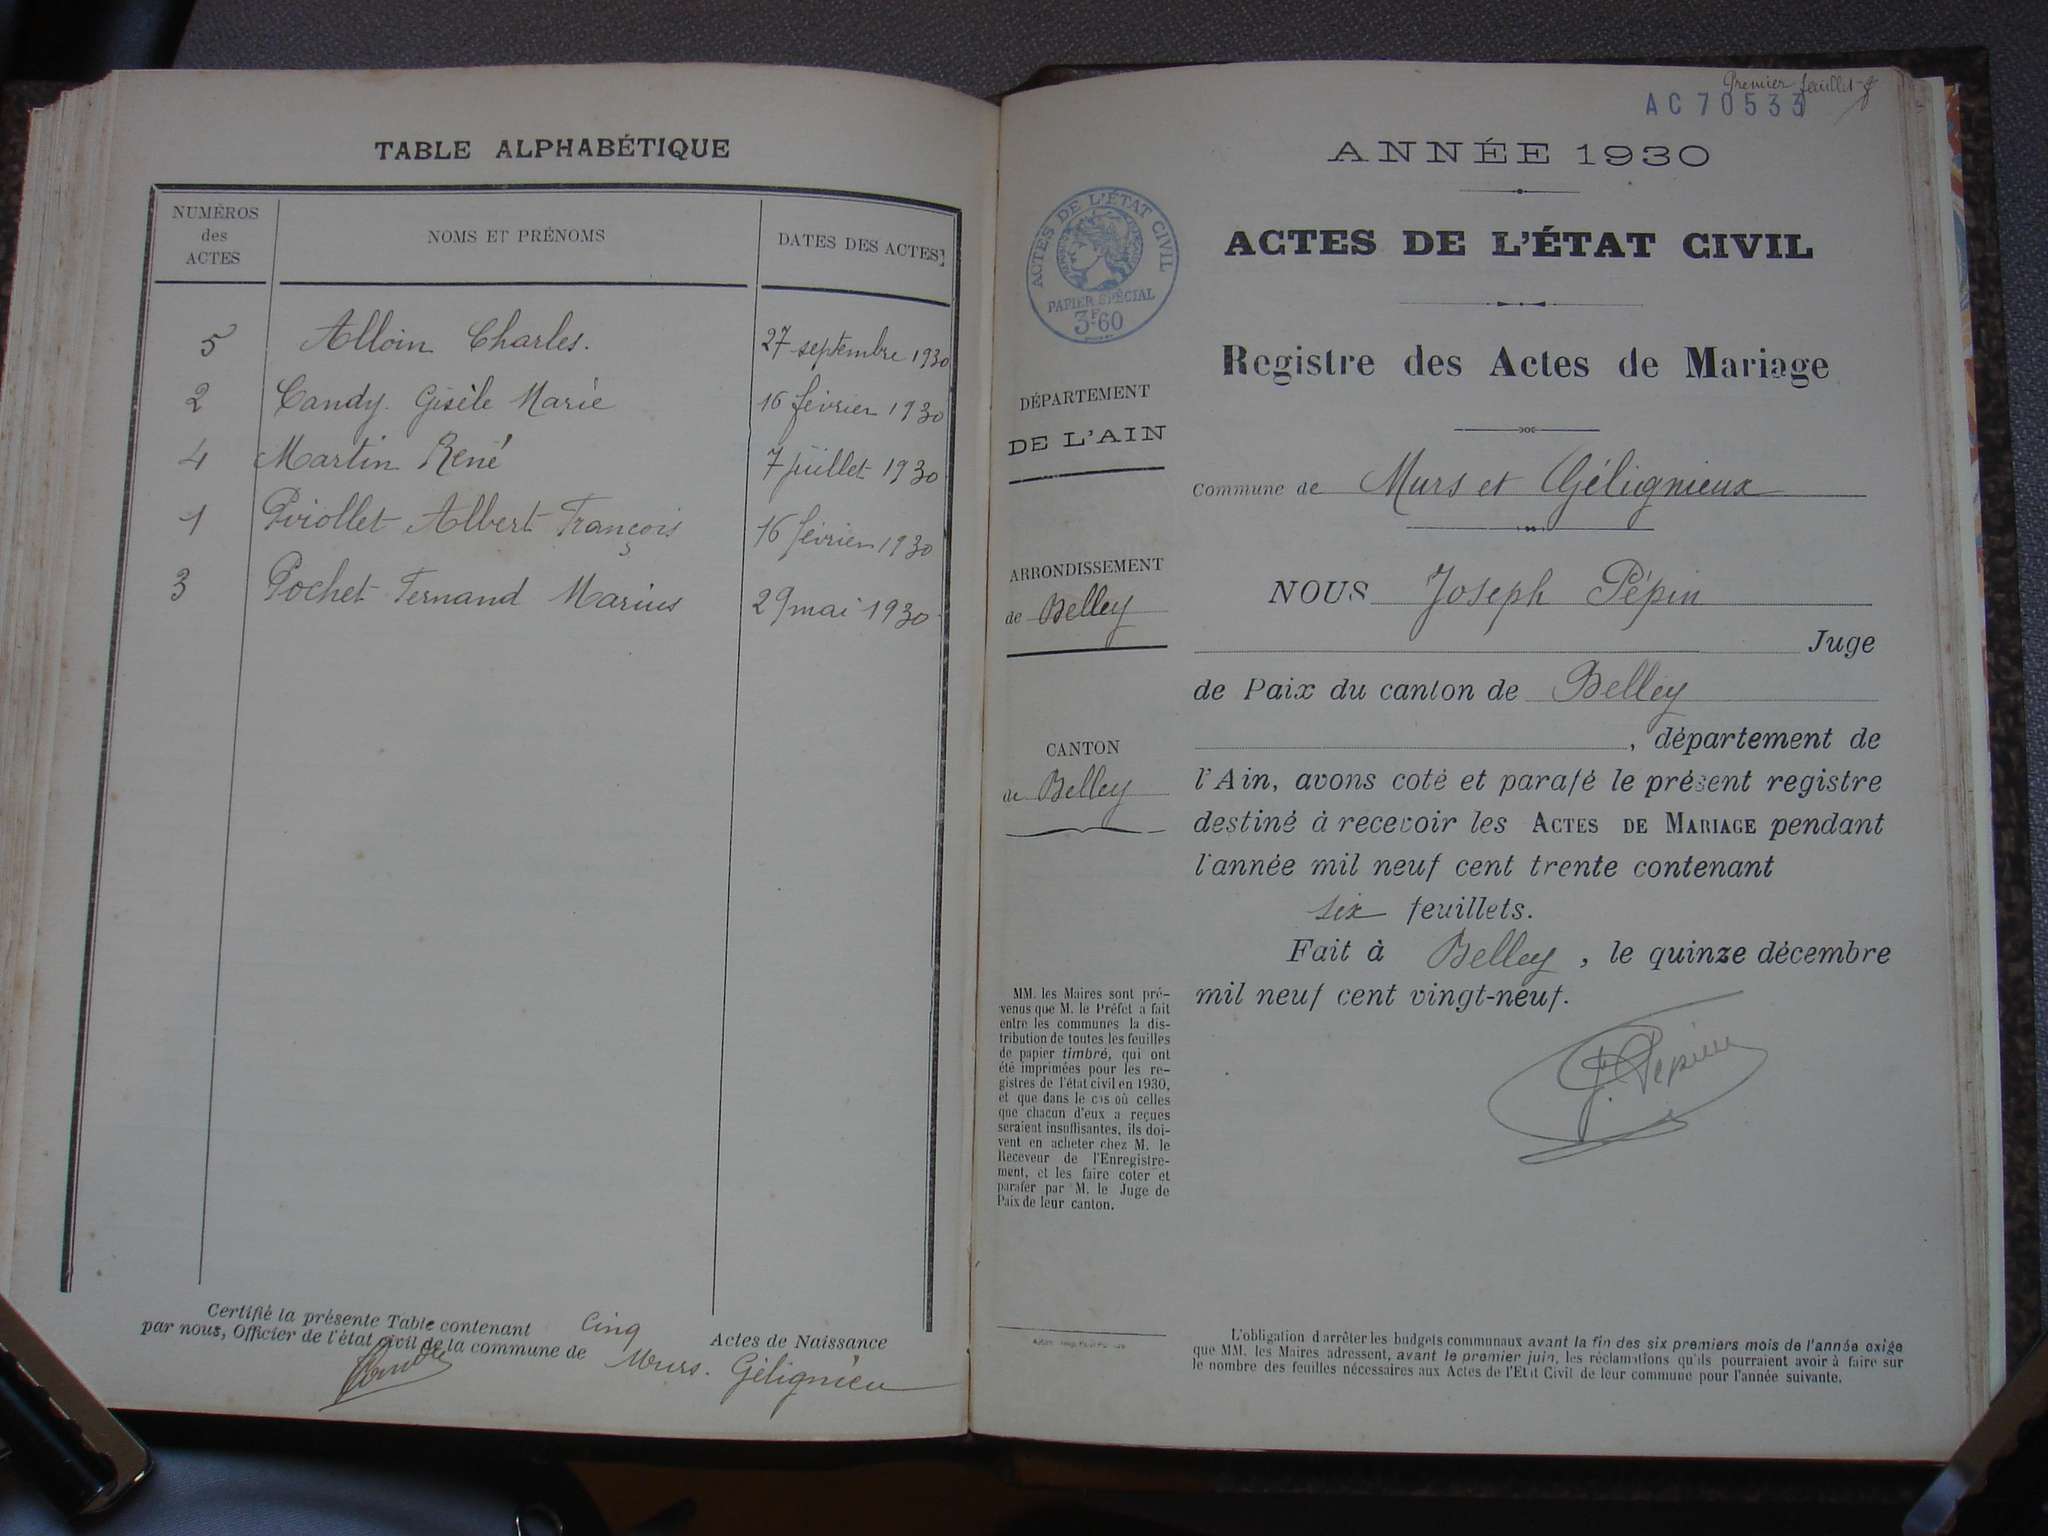 TABLE ALPHABÉTIQUE
NUMÉROS des ACTES
NOMS ET PRÉNOMS
DATES DES ACTES
5 Alloin Charles. 27 septembre 1930
2 Candy Gisèle Marie 16 février 1930
4 Martin René 7 juillet 1930
1 Piriollet Albert François 16 février 1930
3 Pochet Fernand Marius 29 mai 1930
Certifié la présente Table contenant cinq Actes de Naissance
par nous, Officier de l'état civil de la commune de Murs. Gélignieu
Premier feuillet
AC 70533
ANNÉE 1930
ACTES DE L'ÉTAT CIVIL
PAPIER SPÉCIAL
3F60
ACTES DE L'ÉTAT CIVIL
Registre des Actes de Mariage
DÉPARTEMENT
DE L'AIN
Commune de Murs et Gélignieux
ARRONDISSEMENT
de Belley
CANTON
de Belley
NOUS Joseph Pépin
Juge
de Paix du canton de Belley
, département de
l'Ain, avons coté et parafé le présent registre
destiné à recevoir les ACTES DE MARIAGE pendant
l'année mil neuf cent trente contenant
six feuillets.
Fait à Belley, le quinze décembre
mil neuf cent vingt-neuf.
J. Pépin
MM. les Maires sont pré-
venus que M. le Préfet a fait
entre les communes la dis-
tribution de toutes les feuilles
de papier timbré, qui ont
été imprimées pour les re-
gistres de l'état civil en 1930,
et que dans le cas où celles
que chacun d'eux a reçues
seraient insuffisantes, ils doi-
vent en acheter chez M. le
Receveur de l'Enregistre-
ment, et les faire coter et
parafer par M. le Juge de
Paix de leur canton.
L'obligation d'arrêter les budgets communaux avant la fin des six premiers mois de l'année exige
que MM. les Maires adressent, avant le premier juin, les réclamations qu'ils pourraient avoir à faire sur
le nombre des feuilles nécessaires aux Actes de l'Etat Civil de leur commune pour l'année suivante.